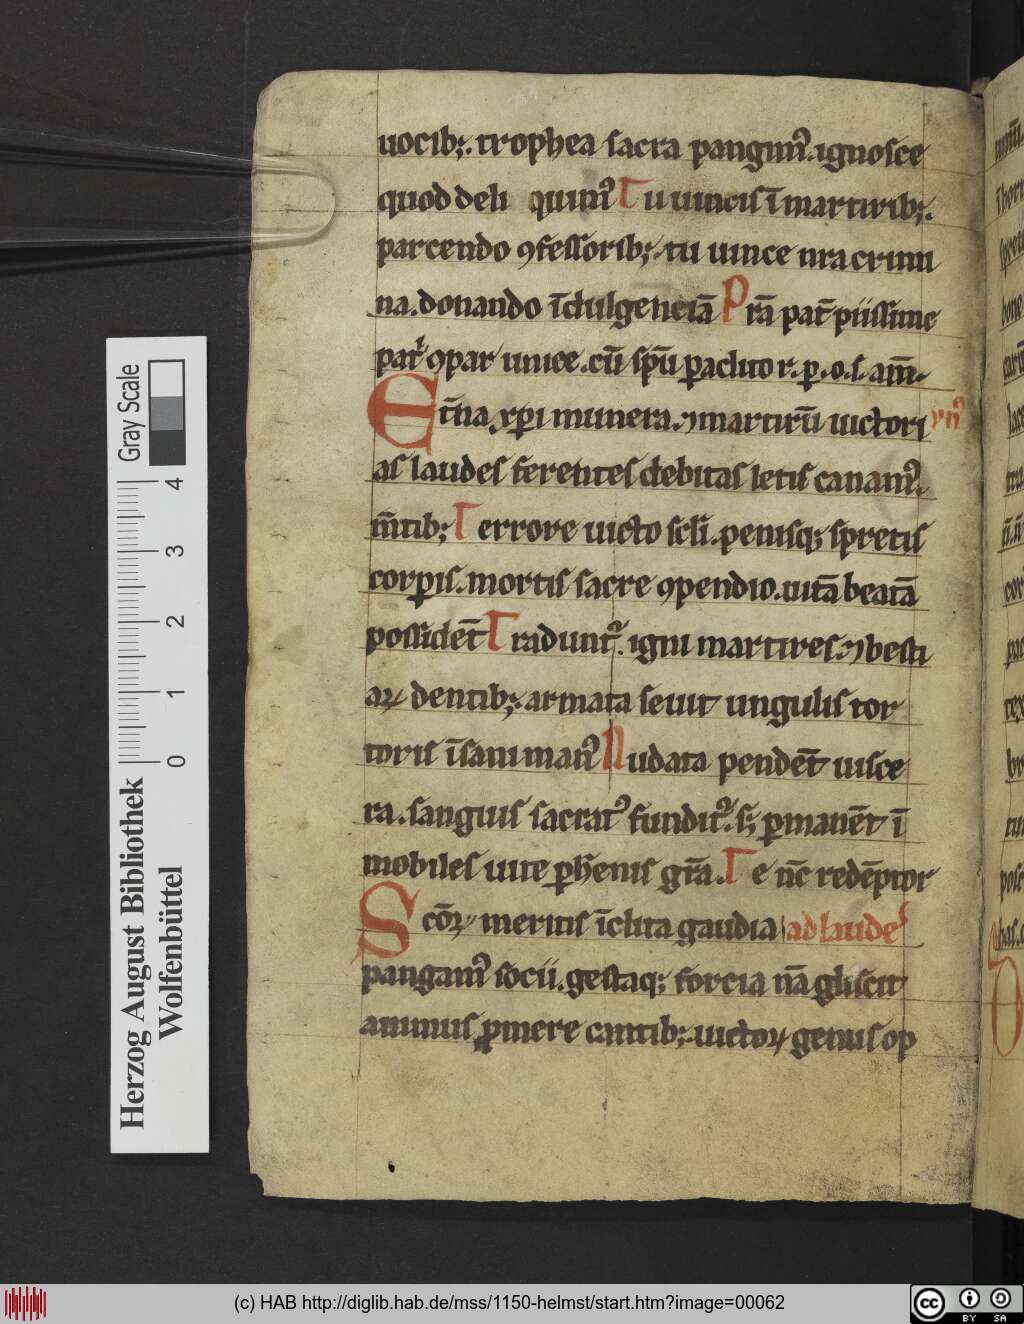 uocib;. trophea sacra pangim᾽. ignosce
quod deli quim᾽ Tu uincis ī martirib;.
parcendo ꝯfessorib;. tu uince nra crimi
na. donando īdulgenciā Prā pat̄ piissime
pat᾽ ꝯpar unice. cū sp̄u paclito r. p. o. s. am̄.
Et̄na xp̄i munera. ⁊ martirū uictori yn᾽
as laudes ferentes debitas letis canam᾽.
m̄tib; Terrore uicto scl̄i. penisq; spretis
corꝑis. mortis sacre ꝯpendio. uitā beatā
possidēt Tradunt᾽. igni martires. ⁊ besti
aꝝ dentib;. armata seuit ungulis tor
toris īsani man᾽ Nudata pendēt uisce
ra. sanguis sacrat᾽ fundit᾽. s; ꝑmanēt ī
mobiles uite ꝑhenis gr̄a. Te nc̄ redēptor
Scōꝝ meritis īclita gaudia ad laudes
pangam᾽ socii. gestaq; forcia nā gliscit
animus ꝓmere cantib;. uictoꝝ genus op
Herzog August Bibliothek
Wolfenbüttel
0 1 2 3 4
Gray Scale
(c) HAB http://diglib.hab.de/mss/1150-helmst/start.htm?image=00062
cc BY SA